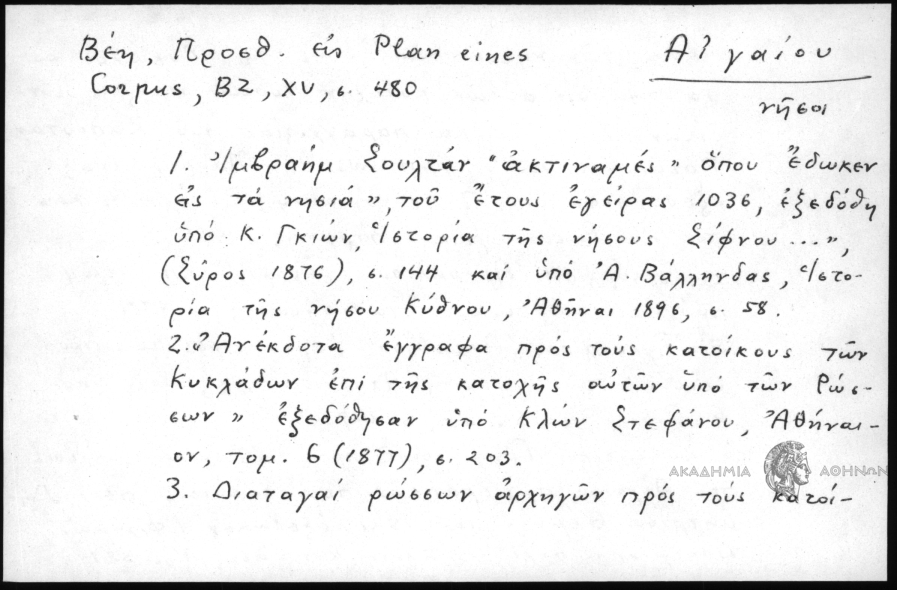 Βέη, Προσθ. εἰς Plan eines
Corpus, BZ, XV, σ. 480
Αἰγαίου
νῆσοι
1. Ἰμβραήμ Σουλτάν "ἀκτιναμές" ὅπου ἔδωκεν
εἰς τά νησιά", τοῦ ἔτους ἐγείρας 1036, ἐξεδόθη
ὑπό Κ. Γκιών, Ἱστορία τῆς νήσους Σίφνου ...",
(Σῦρος 1876), σ. 144 καί ὑπό Ἀ. Βάλληνδας, Ἱστο-
ρία τῆς νήσου Κύθνου, Ἀθῆναι 1896, σ. 58.
2. "Ἀνέκδοτα ἔγγραφα πρός τούς κατοίκους τῶν
Κυκλάδων ἐπί τῆς κατοχῆς αὐτῶν ὑπό τῶν Ρώσ-
σων" ἐξεδόθησαν ὑπό Κλών Στεφάνου, Ἀθήναι-
ον, τομ. 6 (1877), σ. 203.
ΑΚΑΔΗΜΙΑ ΑΘΗΝΩΝ
3. Διαταγαί ρώσσων ἀρχηγῶν πρός τούς κατοί-